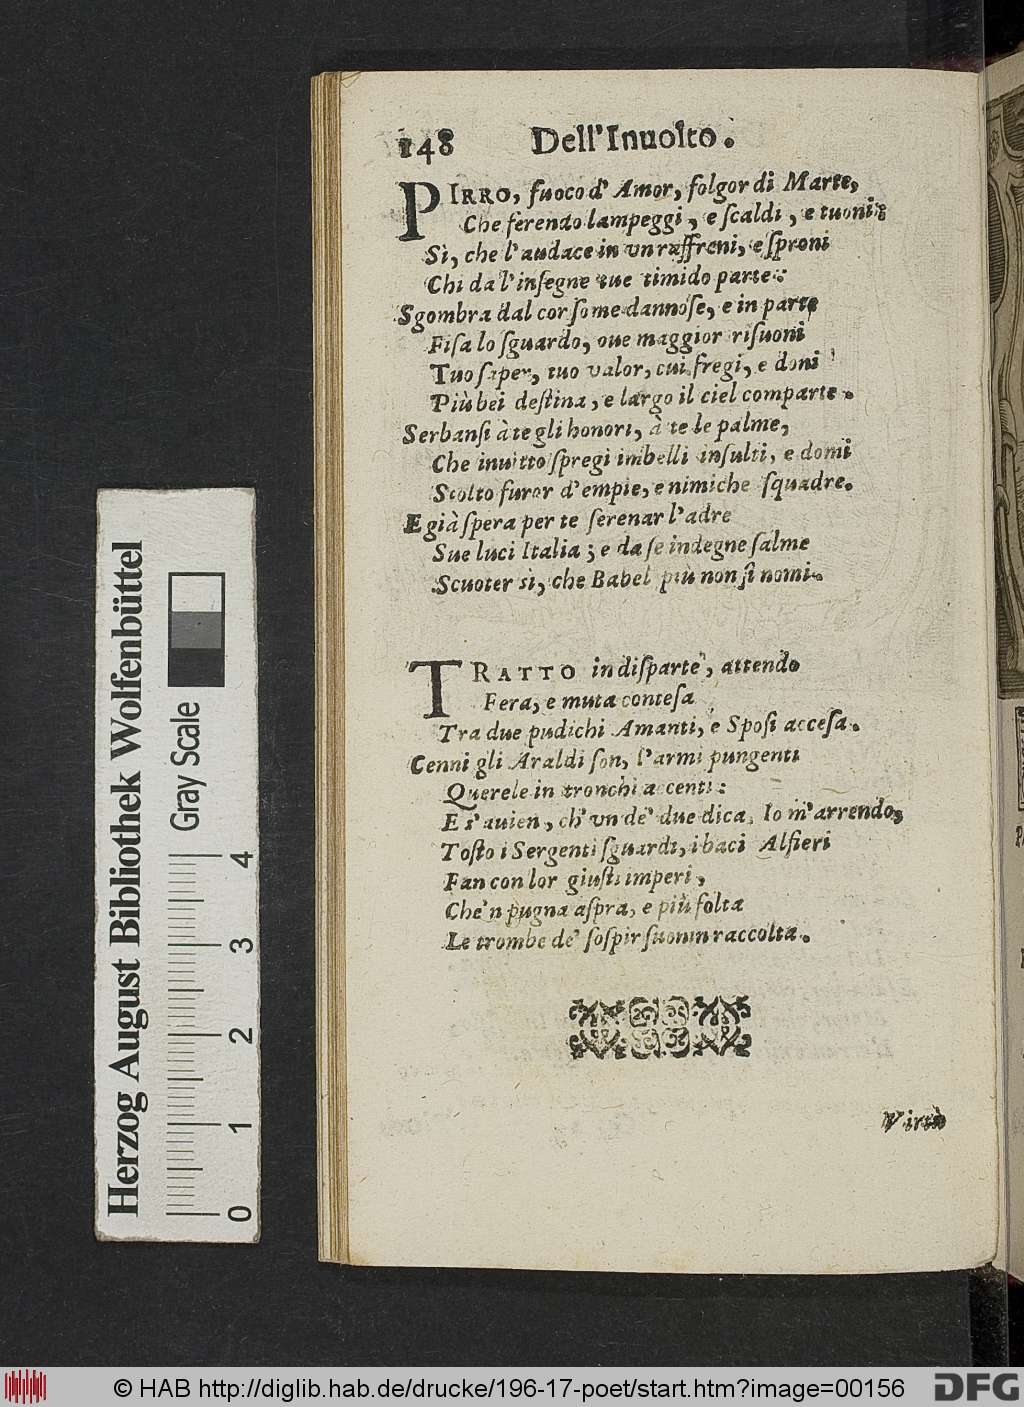 148 Dell'Inuolto.
PIRRO, fuoco d' Amor, folgor di Marte,
Che ferendo lampeggi, e ſcaldi, e tuoni;
Sì, che l'audace in vn raffreni, e ſproni
Chi da l'inſegne tue timido parte:
Sgombra dal cor ſome dannoſe, e in parte
Fiſa lo ſguardo, oue maggior riſuoni
Tuo ſaper, tuo valor, cui fregi, e doni
Più bei deſtina, e largo il ciel comparte.
Serbanſi à te gli honori, à te le palme,
Che inuitto ſpregi imbelli inſulti, e domi
Stolto furor d'empie, e nimiche ſquadre.
E già ſpera per te ſerenar l'adre
Sue luci Italia; e da ſe indegne ſalme
Scuoter sì, che Babel più non ſi nomi.
TRATTO in diſparte, attendo
Fera, e muta conteſa
Tra due pudichi Amanti, e Spoſi acceſa.
Cenni gli Araldi ſon, l'armi pungenti
Querele in tronchi accenti:
E s'auien, ch'vn de' due dica, Io m'arrendo,
Toſto i Sergenti ſguardi, i baci Alfieri
Fan con lor giuſti imperi,
Che'n pugna aſpra, e più folta
Le trombe de' ſoſpir ſuonin raccolta.
Virtù
Herzog August Bibliothek Wolfenbüttel
Gray Scale
0 1 2 3 4
© HAB http://diglib.hab.de/drucke/196-17-poet/start.htm?image=00156
DFG